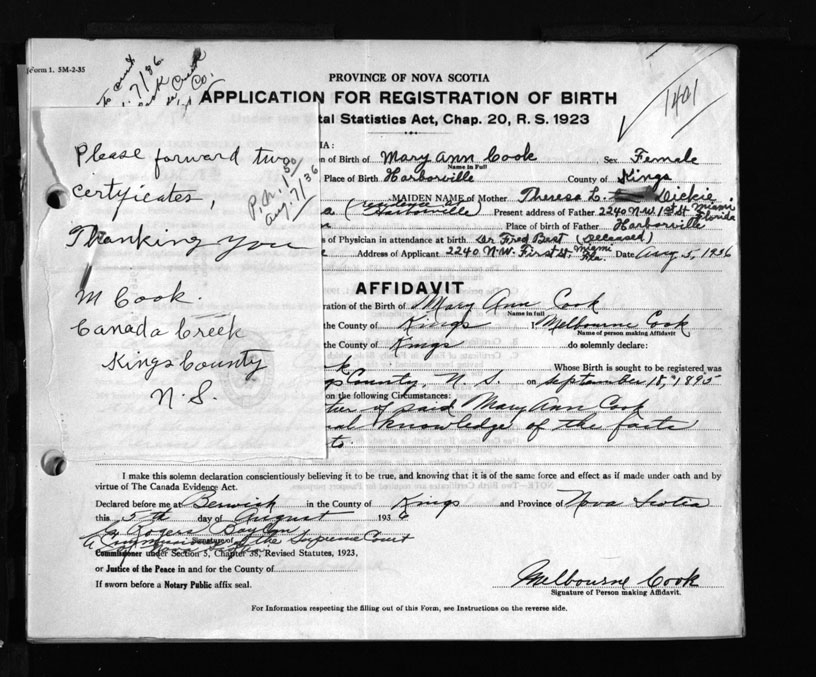 Form 1. 5M-2-35
7/36
Co.
PROVINCE OF NOVA SCOTIA
APPLICATION FOR REGISTRATION OF BIRTH
tal Statistics Act, Chap. 20, R. S. 1923
1401
Please forward two
certificates,
Thanking you
M Cook.
Canada Creek
Kings County
N. S.
Aug. 7/36
IA:
n of Birth of Mary Ann Cook Sex Female
Name in Full
Place of Birth Harborville County of Kings
MAIDEN NAME of Mother Theresa L. Dickie
a (residence at Harborville) Present address of Father 2240 N.W. 1st St Miami Florida
Place of birth of Father Harborville
s of Physician in attendance at birth Dr. Fred Best (Deceased)
Address of Applicant 2240 N.W. First St. Miami Fla. Date Aug 5, 1936
AFFIDAVIT
ration of the Birth of Mary Ann Cook
Name in full
the County of Kings I Melbourne Cook
Name of person making Affidavit
the County of Kings do solemnly declare:
k Whose Birth is sought to be registered was
gs County, N. S. on September 18, 1895
on the following Circumstances:
ther of said Mary Ann Cook
nal knowledge of the facts
to.
I make this solemn declaration conscientiously believing it to be true, and knowing that it is of the same force and effect as if made under oath and by
virtue of The Canada Evidence Act.
Declared before me at Berwick in the County of Kings and Province of Nova Scotia
this 5th day of August 1936
Rogers
Signature of
A Commissioner of the Supreme Court
Commissioner under Section 3, Chapter 38, Revised Statutes, 1923,
or Justice of the Peace in and for the County of
If sworn before a Notary Public affix seal.
Melbourne Cook
Signature of Person making Affidavit.
For Information respecting the filling out of this Form, see Instructions on the reverse side.